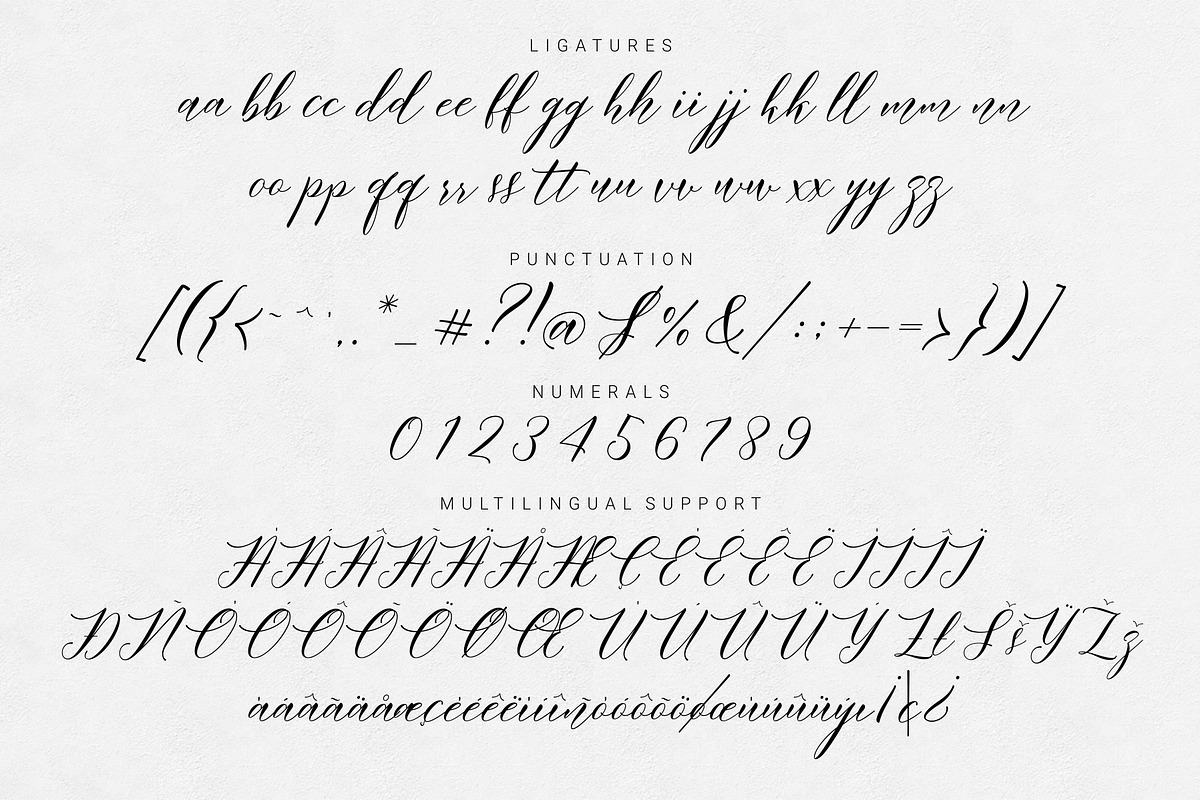 LIGATURES
aa bb cc dd ee ff gg hh ii jj hk ll mm nn
oo pp qq rr ss tt uu vv ww xx yy zz
PUNCTUATION
[({<~^',.*_#?!@$%&/:;+-=>})]
NUMERALS
0123456789
MULTILINGUAL SUPPORT
ÀÁÂÃÄÅÆÇÈÉÊËÌÍÎÏ
ÐÑÒÓÔÕÖØŒÙÚÛÜÝŁłŠšŸŽž
àáâãäåæçèéêëìíîïñòóôõöøœùúûüýı¡¢¿